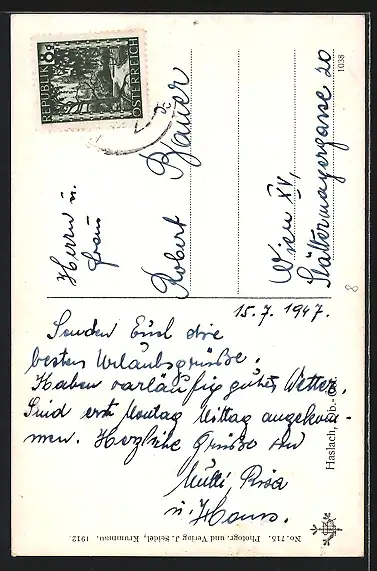 REPUBLIK
8g
ÖSTERREICH
Herrn u.
Frau
Robert Bauer
Wien XV,
Stättermayergasse 20
1038
8
15. 7. 1947.
Senden Euch die
besten Urlaubsgrüße.
Haben vorläufig gutes Wetter.
Sind erst Montag Mittag angekom-
men. Herzliche Grüße von
Mutti, Risa
u. Hans.
Haslach, Ob.-
No. 715. Photogr. und Verlag J. Seidel, Krummau. 1912.